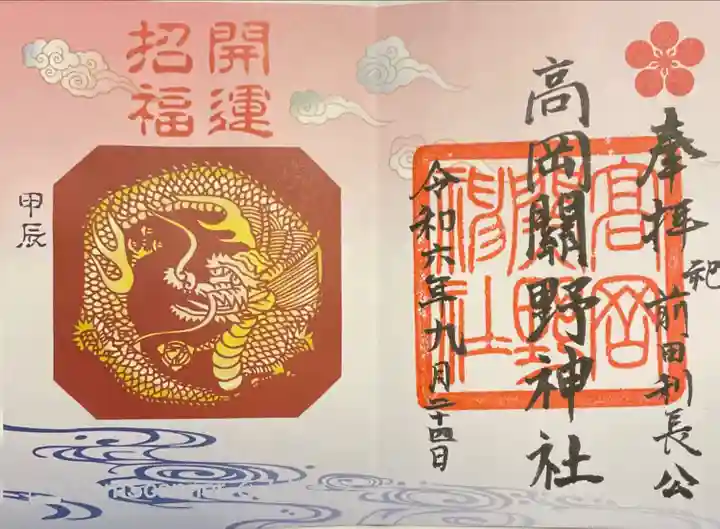 奉拝
祀 前田利長公
高岡關野神社
令和六年九月二十四日
高岡
關野
神社
開運
招福
甲辰